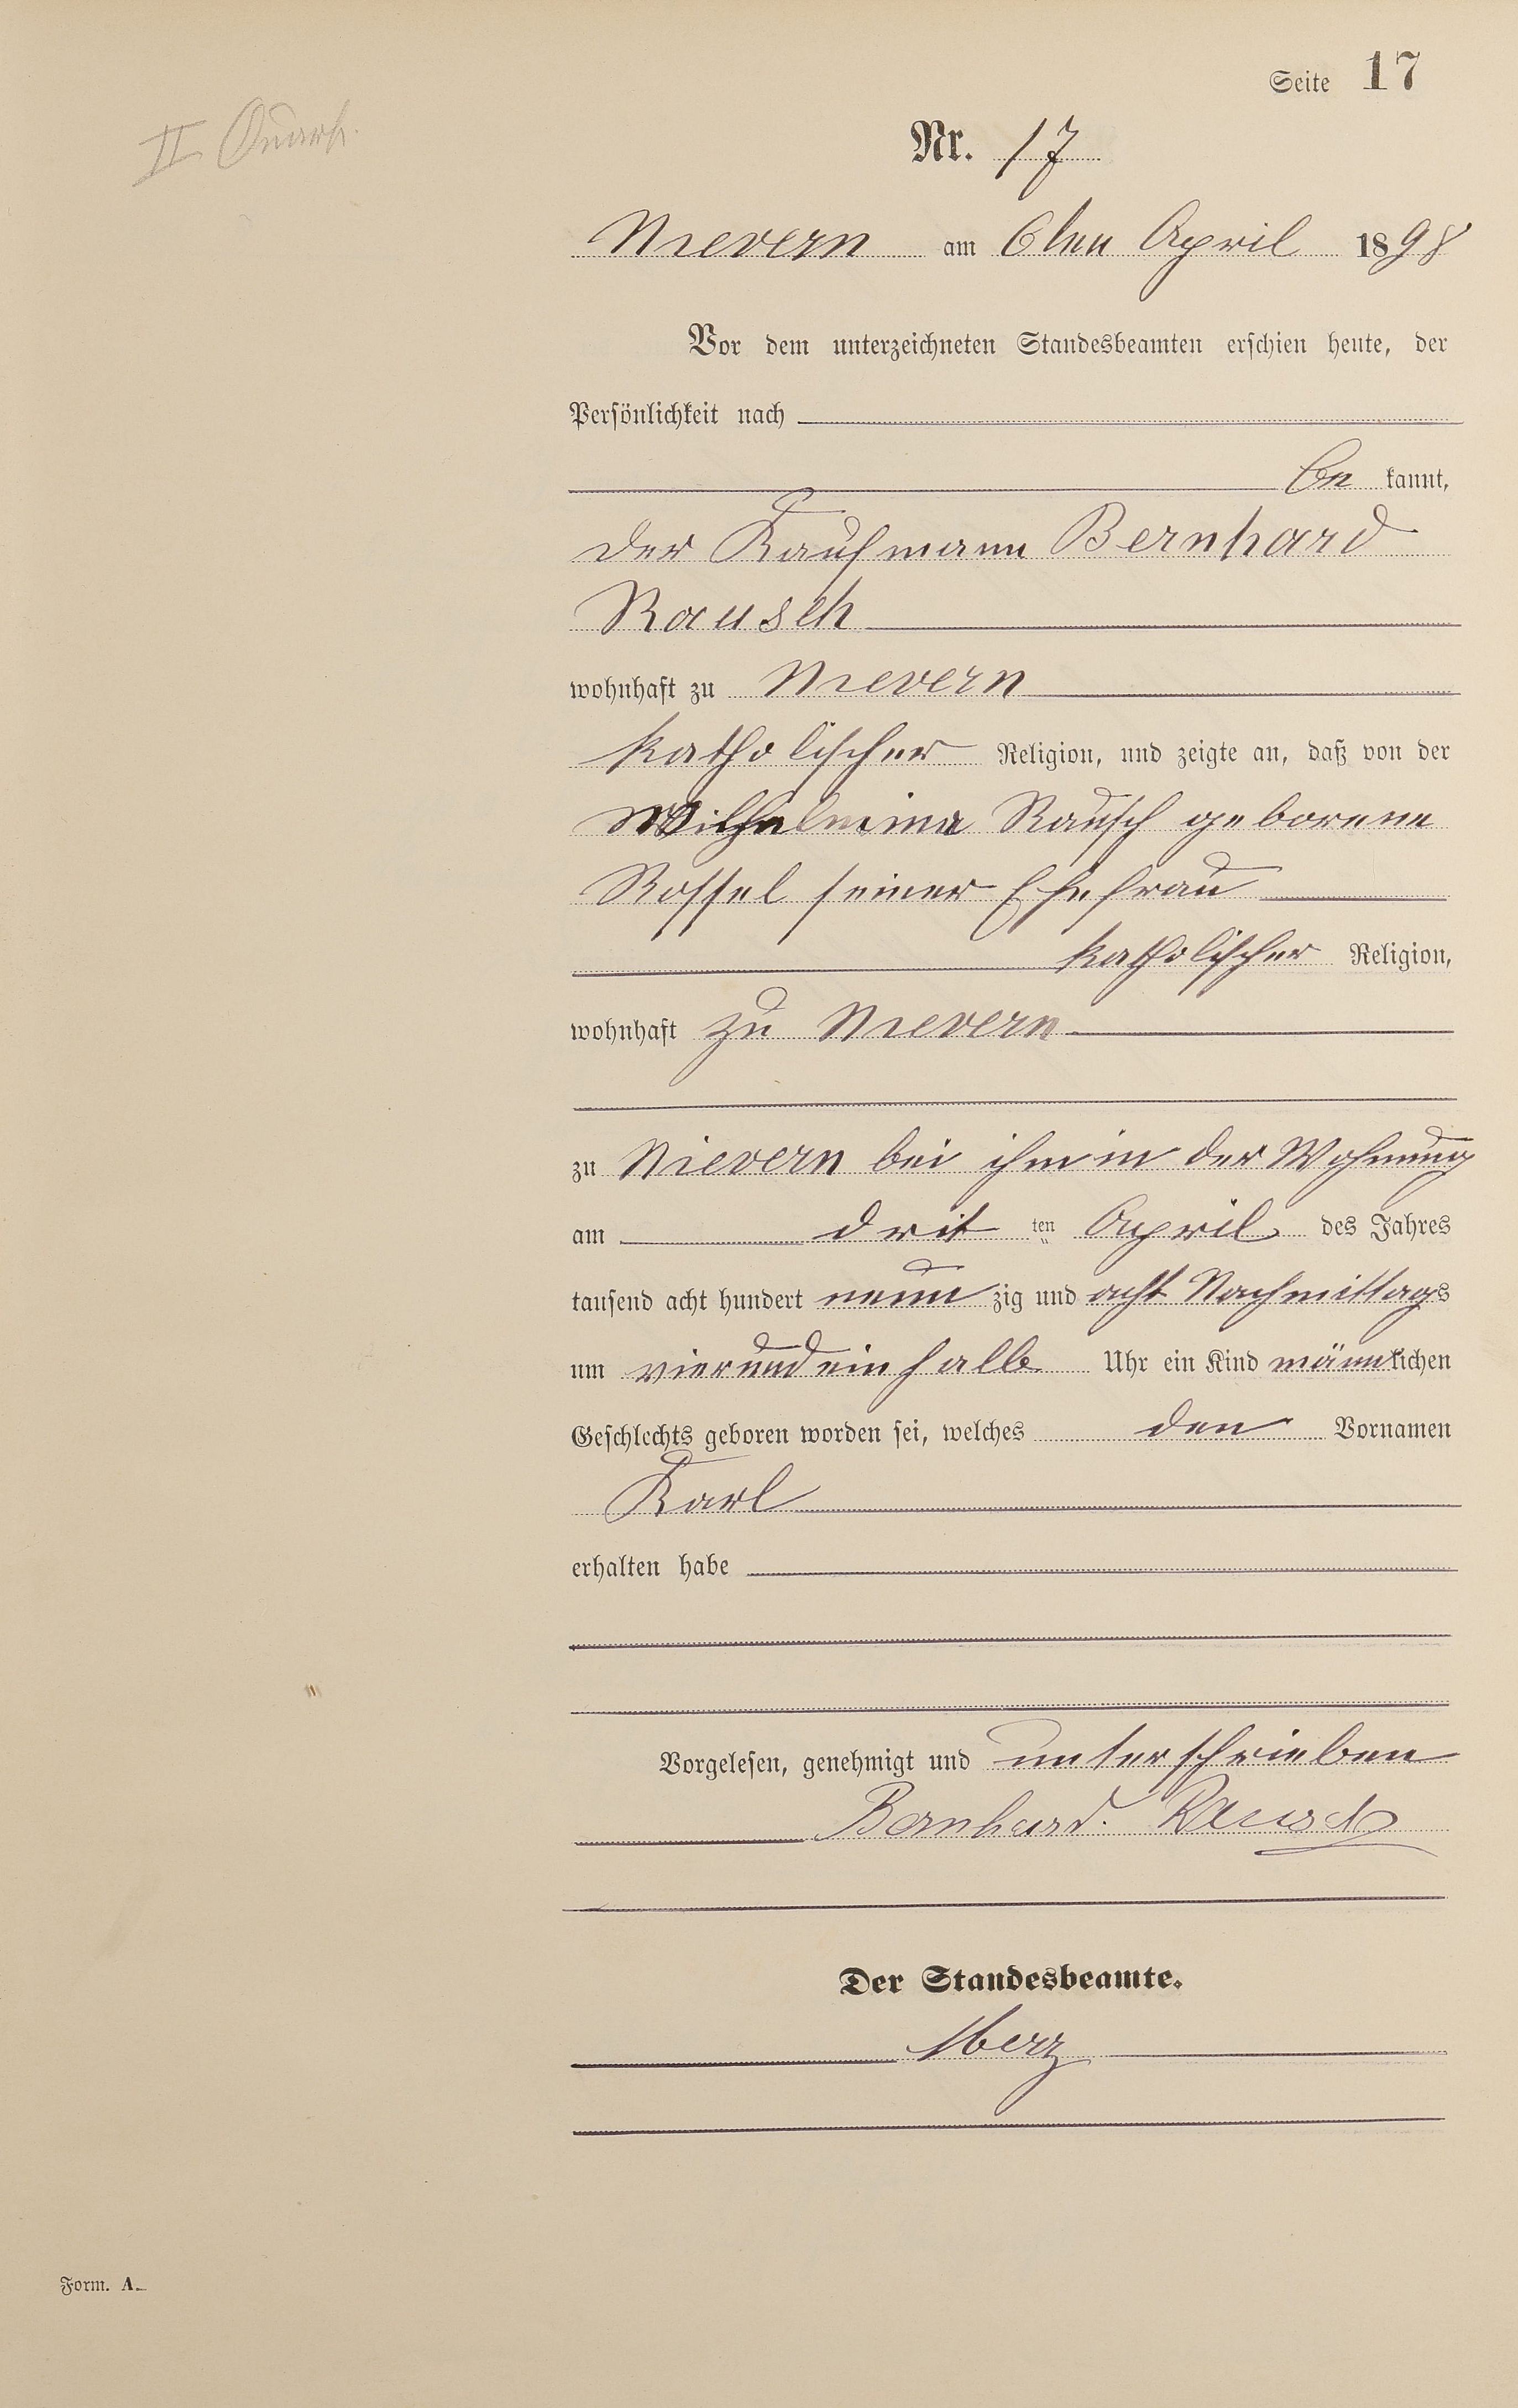 Seite 17
II Quart.
Nr. 17
Nievern am 6ten April 1898
Vor dem unterzeichneten Standesbeamten erschien heute, der
Persönlichkeit nach
be kannt,
der Kaufmann Bernhard
Rausch
wohnhaft zu Nievern
katholischer Religion, und zeigte an, daß von der
Wilhelmina Rausch geborene
Rossel seiner Ehefrau
katholischer Religion,
wohnhaft zu Nievern
zu Nievern bei ihm in der Wohnung
am drit ten April des Jahres
tausend acht hundert neun zig und acht Nachmittags
um vierundeinhalb Uhr ein Kind männlichen
Geschlechts geboren worden sei, welches den Vornamen
Karl
erhalten habe
Vorgelesen, genehmigt und unterschrieben
Bernhard. Rausch
Der Standesbeamte.
Form. A.